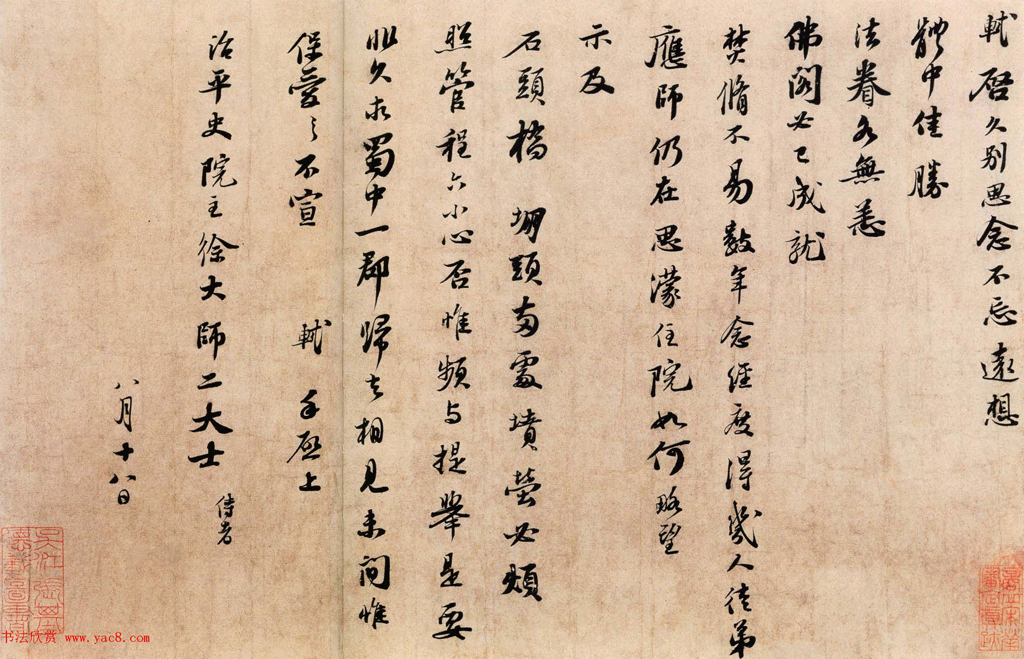 軾啓久別思念不忘遠想
體中佳勝
法眷各無恙
佛閣必已成就
焚脩不易數年念經度得幾人徒弟
應師仍在思濛住院如何略望
示及
石頭橋堋頭兩處墳塋必煩
照管程六小心否惟頻与提舉是要
非久求蜀中一郡歸去相見未間惟
保愛之不宣 軾手啓上
治平史院主徐大師二大士 侍者
八月十八日
书法欣赏 www.yac8.com